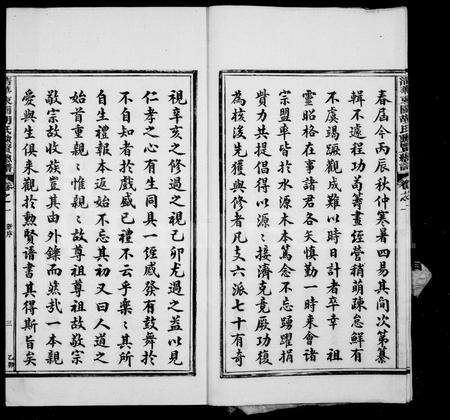 春屆今丙辰秋仲寒暑四易其間次第纂
輯不遑程功苟籌畫經營稍萌疎怠鮮有
不虞竭蹶成難以時日計者卒幸　祖
靈昭格在事諸君各矢慎勤一時來會諸
宗盟車皆於水源木本篤念不忘踴躍捐
貲力共提倡得以源源接濟克竟厥功復
為核浚先後與修者凡支六派七十有奇
視辛亥之修過之視己卯尤過之蓋以見
仁孝之心有生同具一經感發有鼓舞於
不自知者於戲盛已禮不云乎樂樂其所
自生禮報本返始不忘其初又曰人道之
始首重親親惟親親故尊祖尊祖故敬宗
敬宗故收族豈其由外鑠而然哉一本親
愛與生俱來觀於勲賢譜書其得斯旨矣
卷之一
三